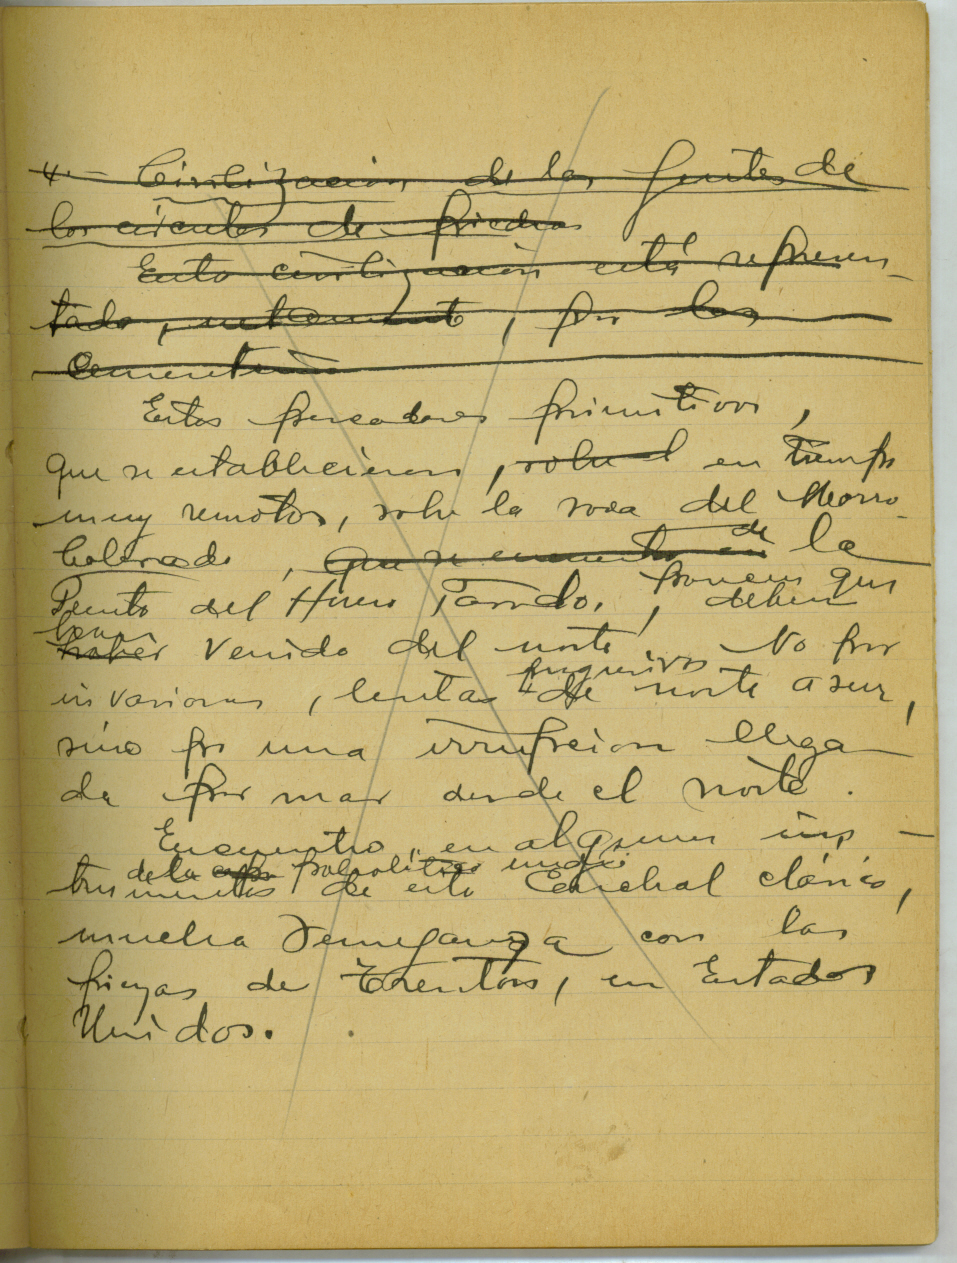 4.- Civilización de las gentes de
los círculos de piedra
Esta civilización está represen-
tada, netamente, por los
cementerios
Estos pescadores primitivos,
que se establecieron, sobre el en tiempos
muy remotos, sobre la roca del Morro
Colorado, que se encuentra en de la
Punta del Hueso Parado, parecen que deben
haber venido del norte. No por
invasiones, lentas de norte a sur,
sino por una irrupcion llega
da por mar desde el norte.
Encuentro, en algunos ins-
de la paleolitico
trumentos de este Conchal clásico,
mucha semejanza con las
piezas de Trenton, en Estados
Unidos.